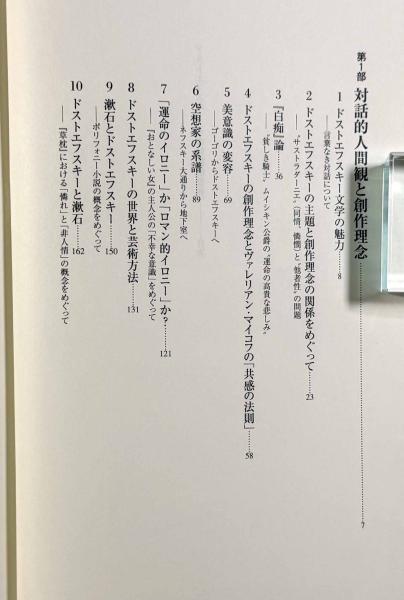 第1部 対話的人間観と創作理念……7
1 ドストエフスキー文学の魅力……8
――言葉なき対話について
2 ドストエフスキーの主題と創作理念の関係をめぐって……23
――"サストラダーニエ"（同情、憐憫）と"他者性"の問題
3 『白痴』論……36
――"貧しき騎士" ムイシキン公爵の"運命の高貴な悲しみ"
4 ドストエフスキーの創作理念とヴァレリアン・マイコフの「共感の法則」……58
5 美意識の変容……69
――ゴーゴリからドストエフスキーへ
6 空想家の系譜……89
――ネフスキー大通りから地下室へ
7 「運命のイロニー」か「ロマン的イロニー」か？……121
――『おとなしい女』の主人公の「不幸な意識」をめぐって
8 ドストエフスキーの世界と芸術方法……131
9 漱石とドストエフスキー……150
――ポリフォニー小説の概念をめぐって
10 ドストエフスキーと漱石……162
――『草枕』における「憐れ」と「非人情」の概念をめぐって